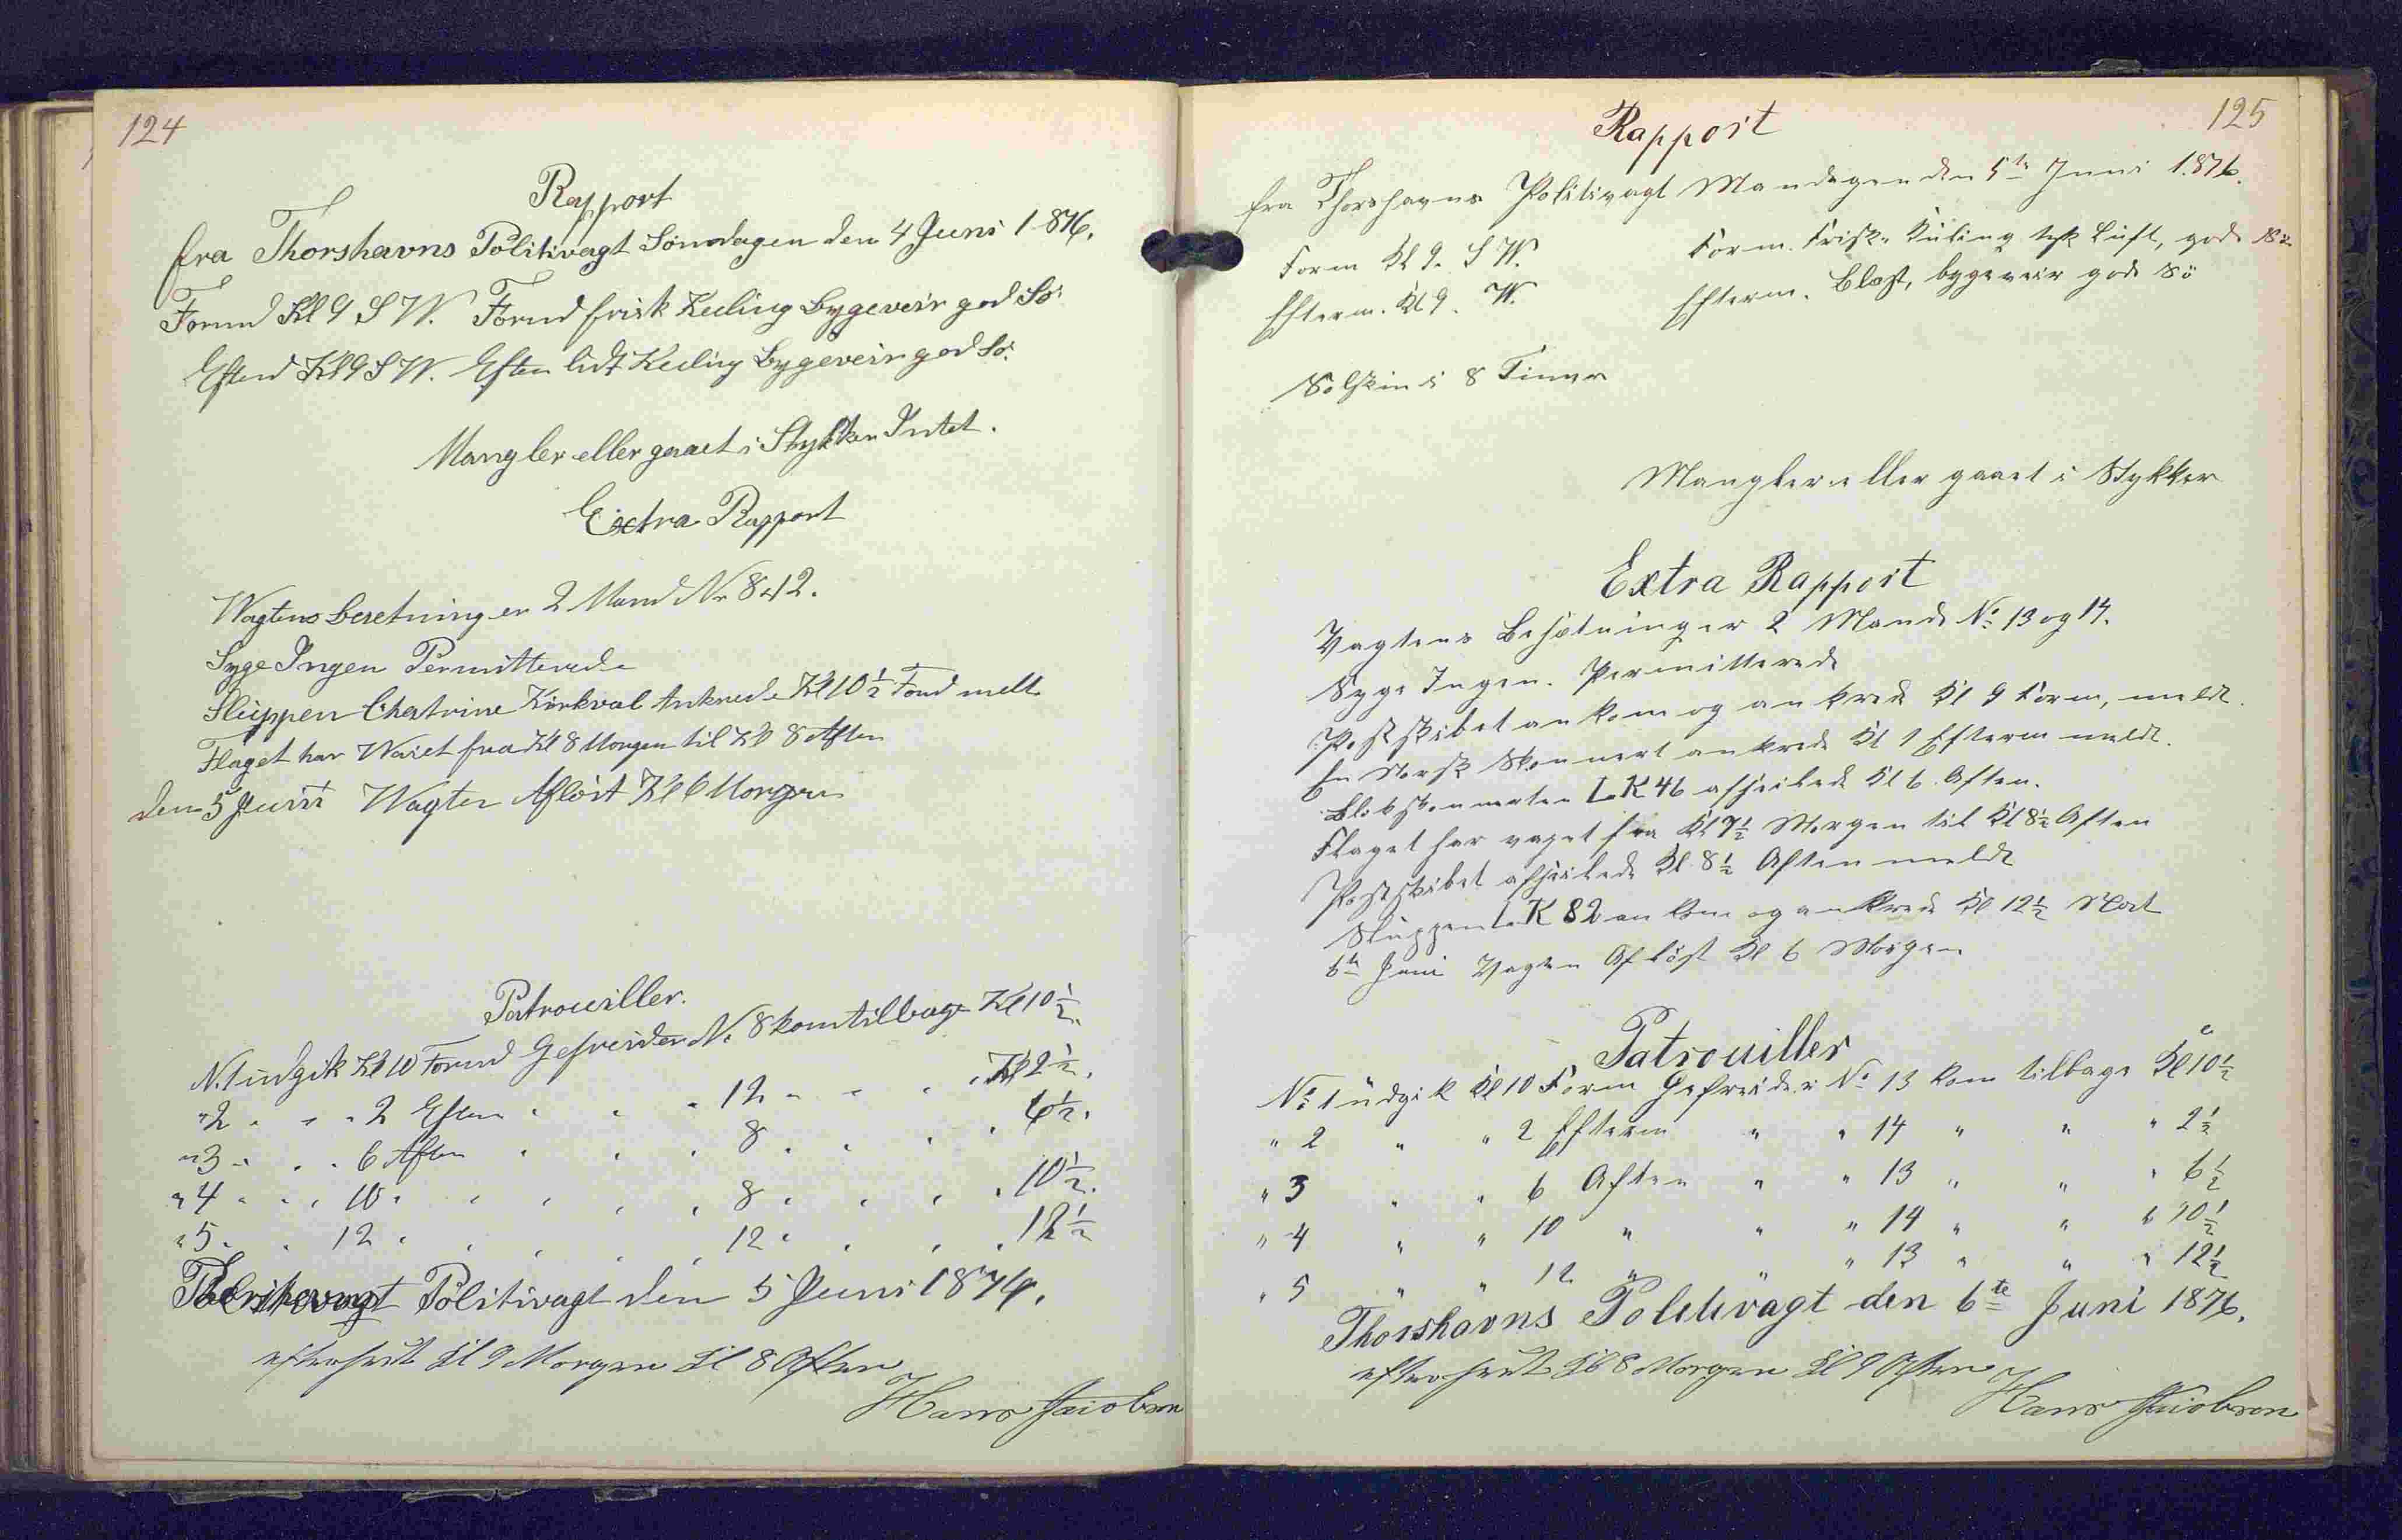 124
Rapport
fra Thorshavns Politivagt Søndagen den 4 Juni 1876.
Formd Kl 9 S W. Formd frisk Kuling Bygeveir god Sø
Efterd Kl 9 S W. Eftm lidt Kuling Bygeveir god Sø.
Mangler eller gaaet i Stykker Intet.
Extra Rapport
Wagtens Beretning er 2 Mand Nr 8 12.
Syge Ingen Permitterede
Sluppen Chatrine Kirkval Ankrede Kl 10½ Formd meldt
Flaget har Waiet fra Kl 8 Morgen til Kl 8 Aften
den 5 Juni Wagten Afløst Kl 6 Morgen
Patrouiller.
N. 1 udgik Kl 10 Formd Gefreider N. 8 kom tilbage Kl 10½.
" 2 " " " 2 Eftm " " " 12 " " " " Kl 2½.
" 3 " " " 6 Aften " " " 8 " " " " 6½.
" 4 " " " 10 " " " " " 8 " " " " 10½.
" 5 " " 12 " " " " " 12 " " " " 12½
Politivagt den 5 Juni 1876.
efterseet Kl 9 Morgen Kl 8 Aften
Hans Jacobsen
125
Rapport
fra Thorshavns Politivagt Mandagen den 5te Juni 1876.
Form Kl 9. S W. Form. Frisk Kuling tyk Luft, gode Sø
Efterm. Kl 9. W. Efterm. Blæst, bygeveir gode Sö
Solskin i 8 Timer
Mangler eller gaaet i Stykker
Extra Rapport
Vagtens Besætning er 2 Mand No 13 og 14.
Syge Ingen. Permitterede
Postskibet ankom og ankrede Kl 9 Form, meldt.
En Norsk Skonnert ankrede Kl 1 Efterm meldt.
Blokskonnerten L K 46 afseilede Kl 6 Aften.
Flaget har vaget fra Kl 7½ Morgen til Kl 8½ Aften
Postskibet afseilede Kl. 8½ Aften meldt
Sluppen L K 82 ankom og ankrede Kl 12½ Nat
6te Juni Vagten Aflöst Kl 6 Morgen
Patrouiller
No 1 udgik Kl 10 Form Gefreider No 13 kom tilbage Kl 10½
" 2 " " 2 Efterm " " 14 " " " 2½
" 3 " " 6 Aften " " 13 " " " 6½
" 4 " " 10 " " " 14 " " " 10½
" 5 " " 12 " " " 13 " " " 12½
Thorshavns Politivagt den 6te Juni 1876.
efterseet Kl 8 Morgen Kl 9 Aften
Hans Jacobsen